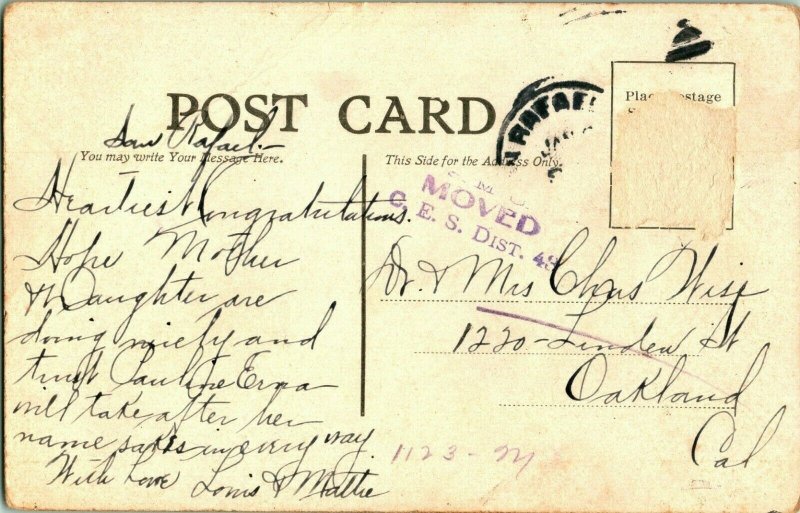 POST CARD
Place Postage
San Rafael-
You may write Your Message Here.
This Side for the Address Only.
N RAFAEL
JAN
MOVED
C. E. S. DIST. 49
Heartiest Congratulations.
Hope Mother
& Daughter are
doing nicely and
trust Pauline Erna
will take after her
name sakes in every way.
With Love Louis & Mattie
Dr. & Mrs Chas Wise
1220-Linden St
Oakland
Cal
1123-